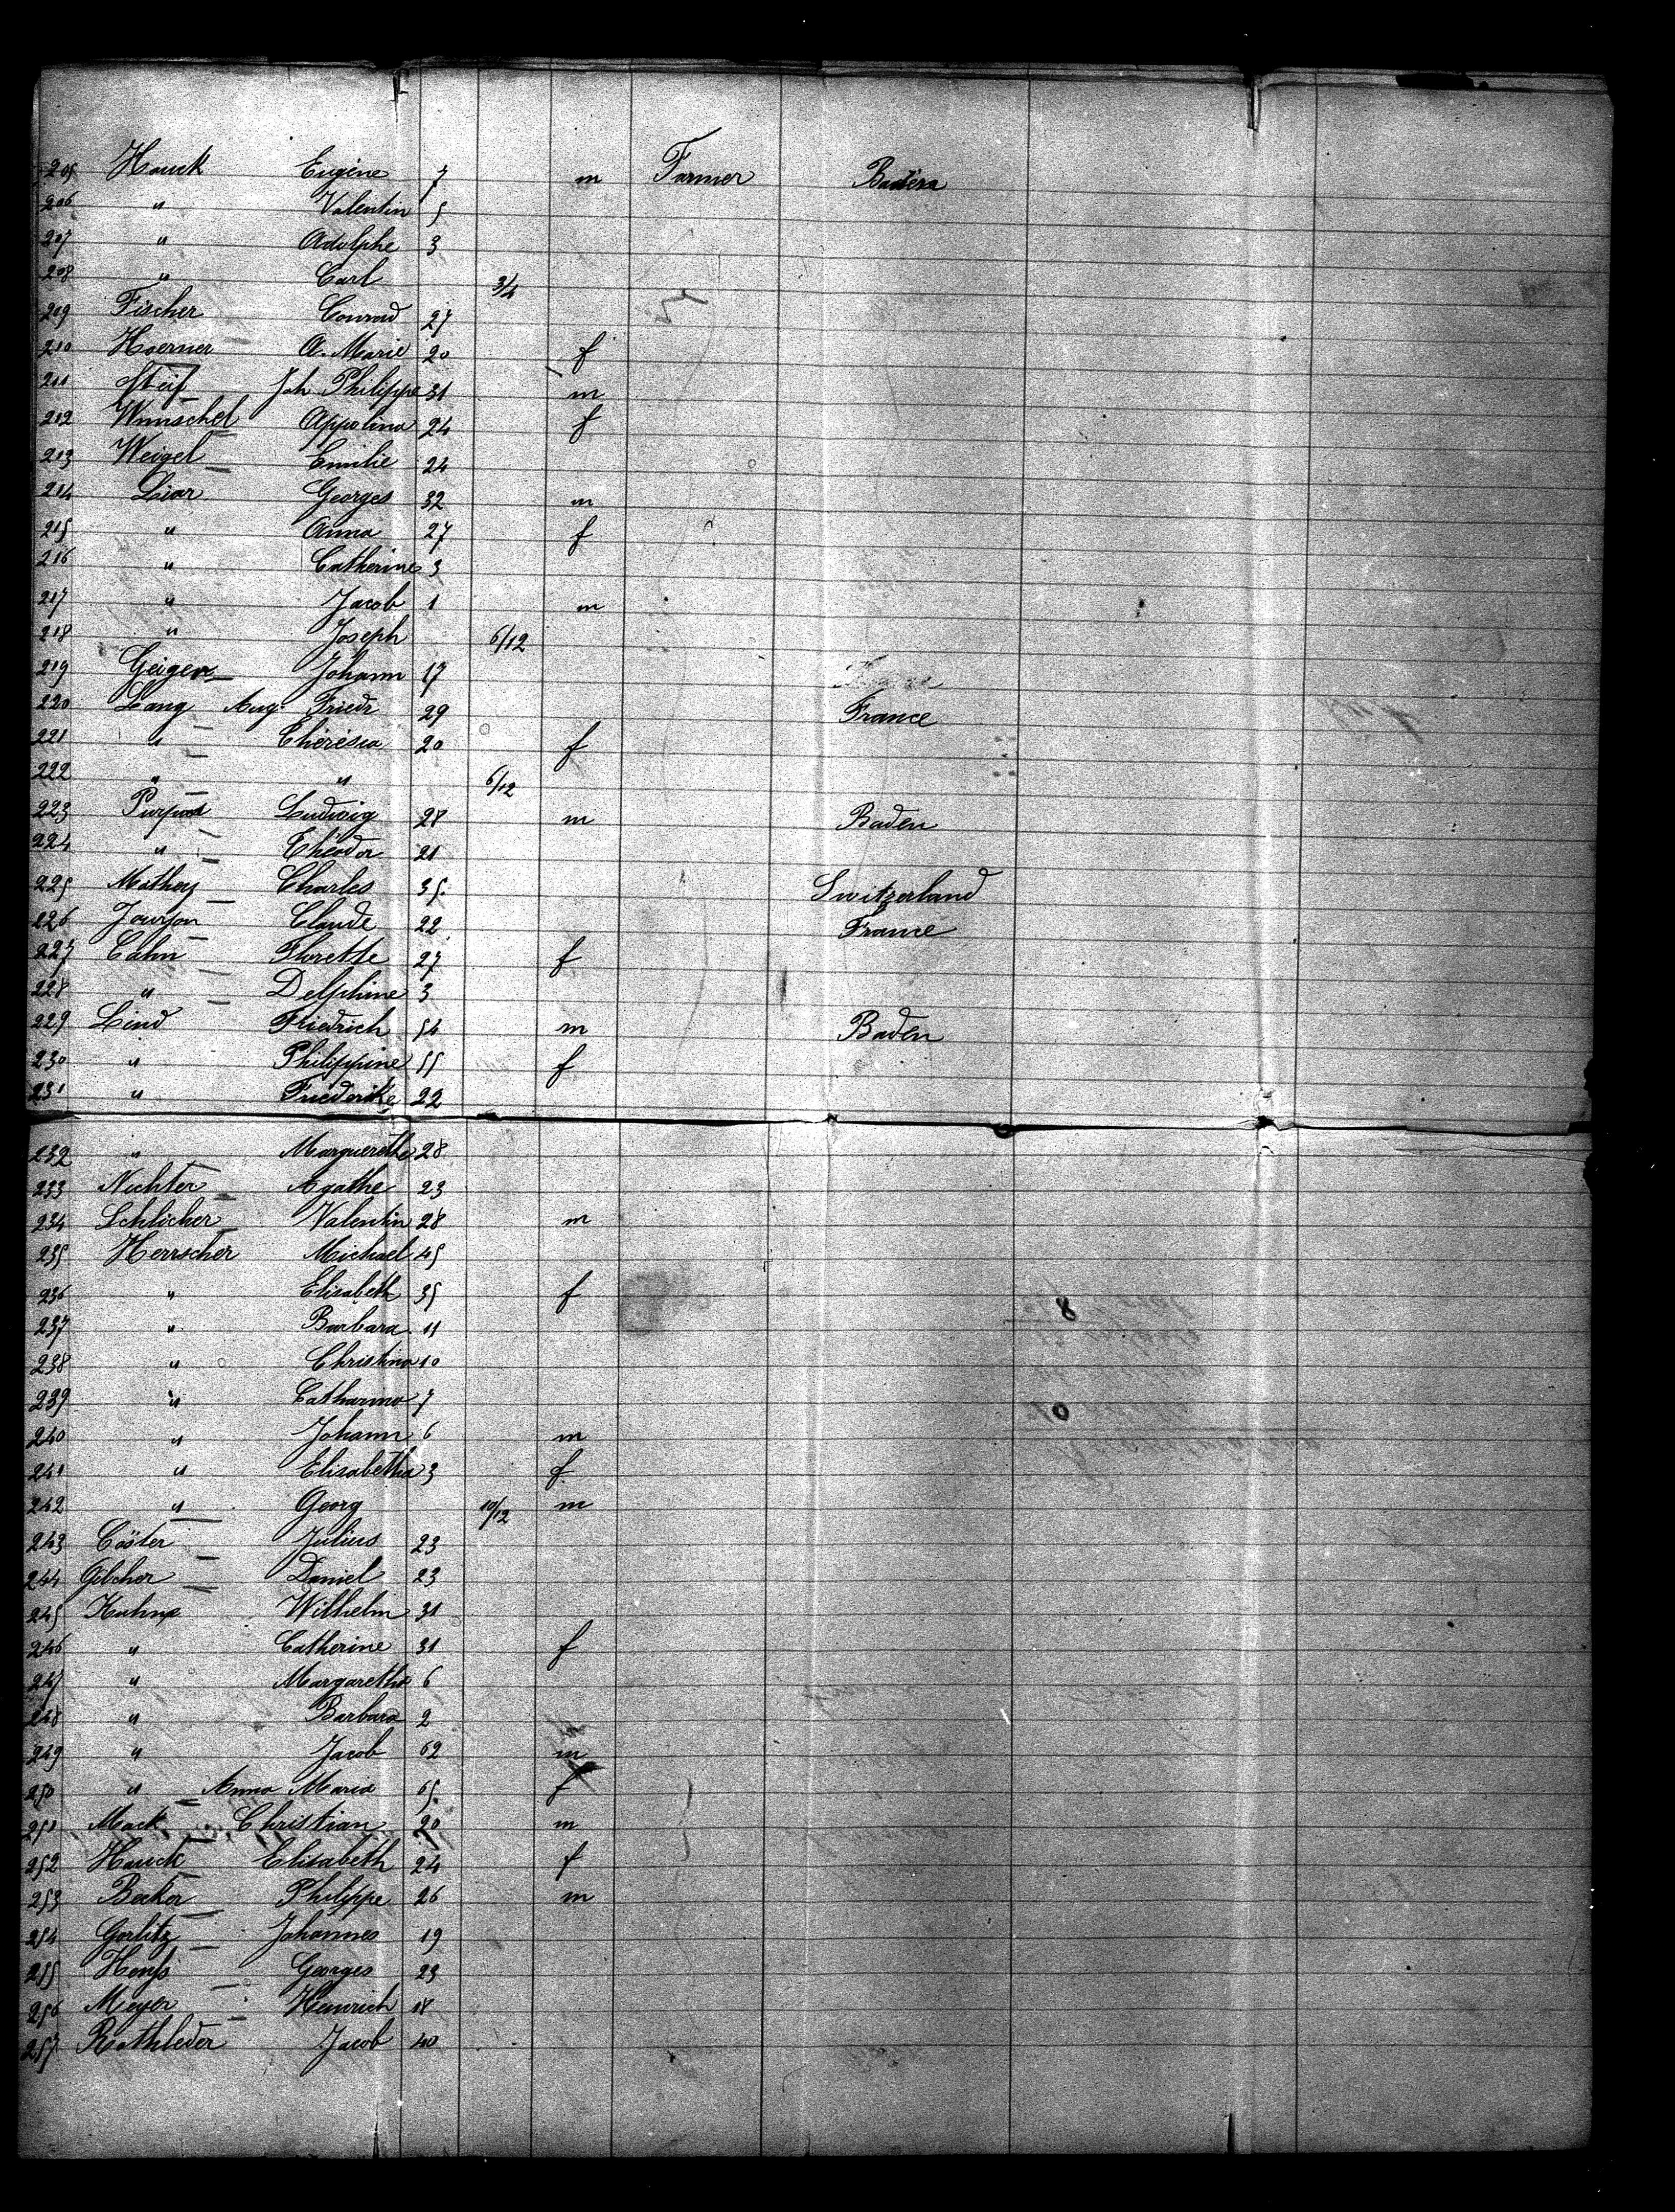 205 Hauck Eugène 7 m Farmer
206 " Valentin 5
207 " Adolphe 3
208 " Carl 3/4
209 Fischer Conrad 27
210 Hoerner A. Marie 20 f
211 Joh. Philippe 31 m
212 Wunschel Appolina 24 f
213 Weigel Emilie 24
214 Georges 32 m
215 " Anna 27 f
216 " Catherine 3
217 " Jacob 1 m
218 " Joseph 6/12
219 Geiger Johann 17
220 Lang Aug. Friedr 29 France
221 " Thérésia 20 f
222 " " 6/12
223 Ludwig 28 m Baden
224 " Théodor 21
225 Mathey Charles 35 Switzerland
226 Claude 22 France
227 Cahn Florette 27 f
228 " Delphine 3
229 Lind Friedrich 54 m Baden
230 " Philippine 55 f
231 " Friederike 22
232 " Marguerethe 28
233 Nichter Agathe 23
234 Schlicher Valentin 28 m
235 Herrscher Michael 45
236 " Elisabeth 35 f
237 " Barbara 11
238 " Christina 10
239 " Catharina 7
240 " Johann 6 m
241 " Elisabetha 3 f
242 " Georg 10/12 m
243 Cöster Julius 23
244 Gilcher Daniel 23
245 Wilhelm 31
246 " Catherine 31 f
247 " Margaretha 6
248 " Barbara 2
249 " Jacob 62 m
250 " Anna Maria 65 f
251 Mack Christian 20 m
252 Hauck Elisabeth 24 f
253 Becker Philippe 26 m
254 Gorlitz Johannes 19
255 Georges 23
256 Meyer Heinrich 18
257 Rothleder Jacob 40